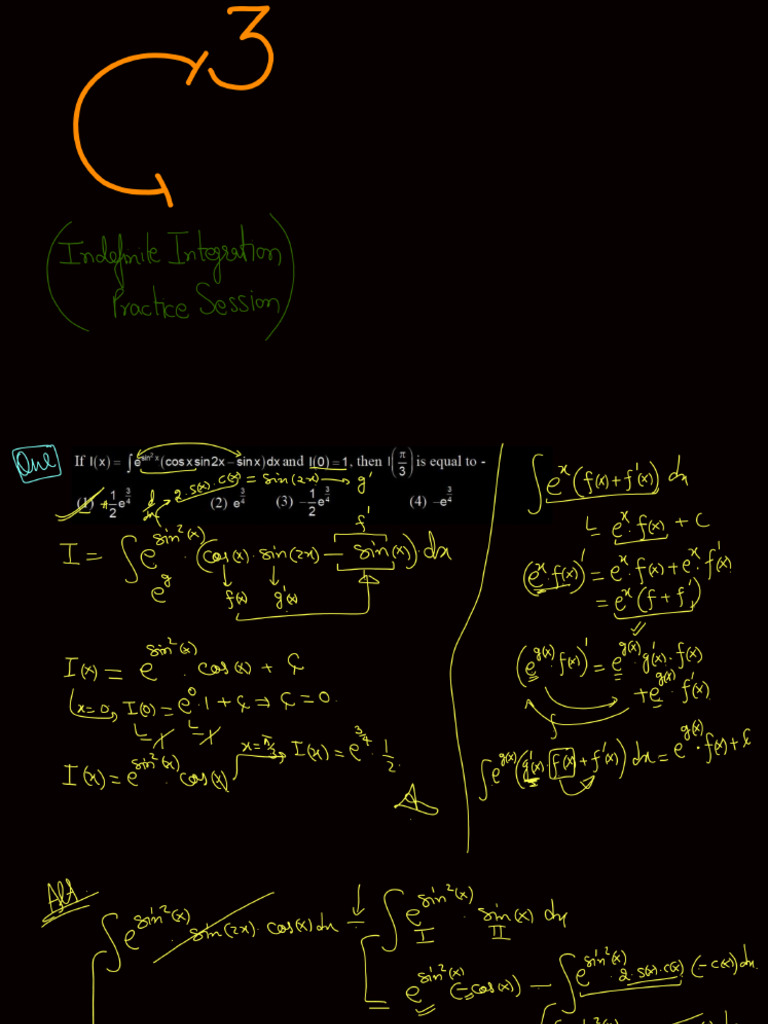 3
(Indefinite Integration
Practice Session)
Que
If I(x) = ∫e^(sin²x) (cos x sin2x – sin x) dx and I(0) = 1, then I(π/3) is equal to -
2·s(x)·c(x) = sin(2x) → g'
(1) +1/2 e^(3/4) (2) e^(3/4) (3) –1/2 e^(3/4) (4) –e^(3/4)
f'
I = ∫ e^(sin²(x)) · (cos(x) · sin(2x) – sin(x)) · dx
e^g f(x) g'(x)
I(x) = e^(sin²(x)) · cos(x) + C
x=0, I(0) = e^0 · 1 + C ⇒ C = 0.
I(x) = e^(sin²(x)) · cos(x) x=π/3 I(x) = e^(3/4) · 1/2.
∫ e^x (f(x) + f'(x)) dx
= e^x · f(x) + C
(e^x · f(x))' = e^x · f(x) + e^x · f'(x)
= e^x (f + f')
(e^(g(x)) · f(x))' = e^(g(x)) · g'(x) · f(x)
+ e^(g(x)) · f'(x)
∫ e^(g(x)) (g'(x) · f(x) + f'(x)) dx = e^(g(x)) · f(x) + C
Alt
∫ e^(sin²(x)) · sin(2x) · cos(x) dx – ∫ e^(sin²(x)) · sin(x) dx
I II
= e^(sin²(x)) (–cos(x)) – ∫ e^(sin²(x)) · 2·s(x)·c(x) (–c(x)) dx